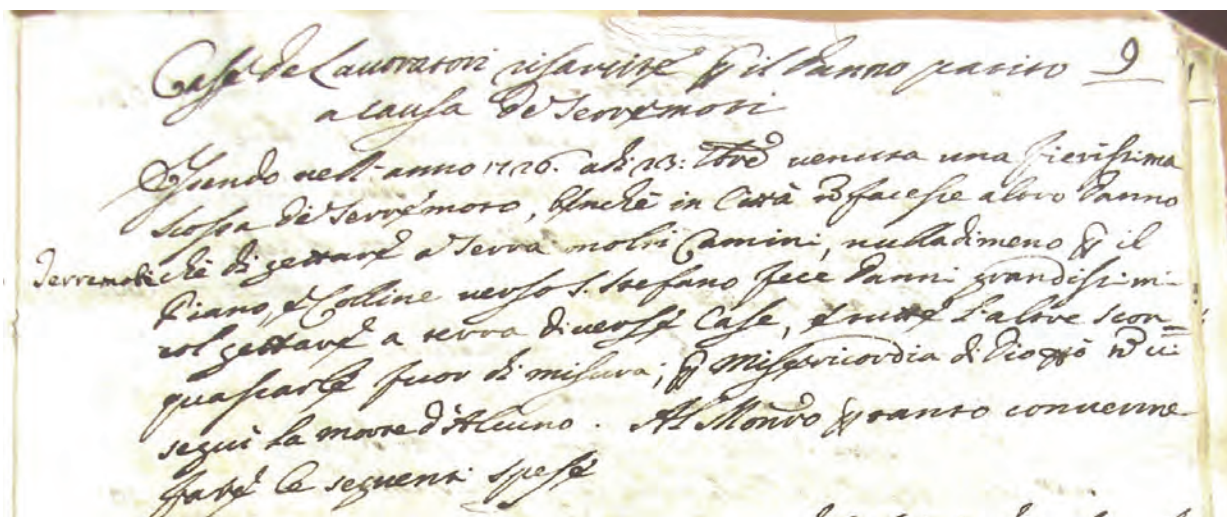 Case de Lavoratori risarcite p il danno patito 9
a causa de Terremoti
Essendo nell'anno 1726. adi 23: venuta una fierissima
scossa di Terremoto, benchè in Città nõ facesse altro danno
Terremoti
che di gettare a Terra molti Camini, nulladimeno p il
Piano, e Colline verso S. Stefano fece danni grandissimi
col gettare a terra diverse Case, e tutte l'altre scon=
quassarle fuor di misura; p Misericordia di Dio pò nõ vi
seguì la morte d'Alcuno. Al Monrõ p tanto convenne
fare le seguenti spese